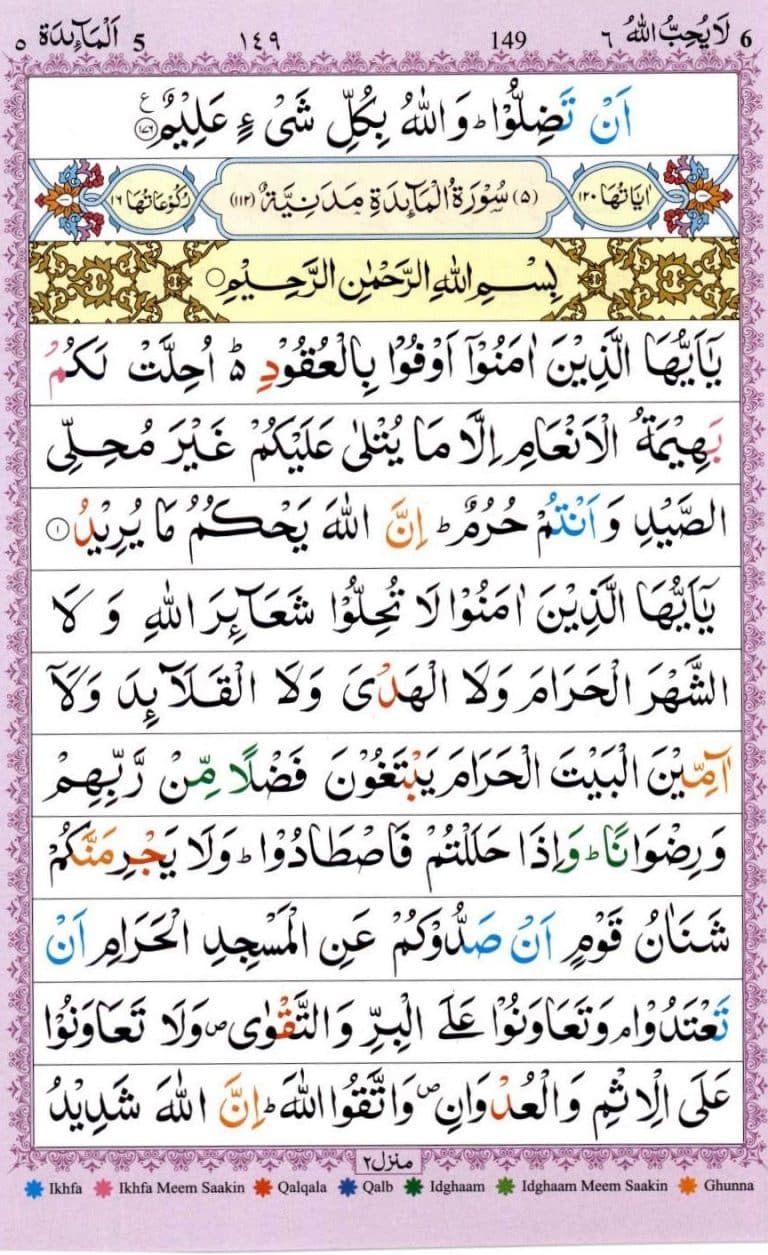 6 لَايُحِبُّ اللّٰهُ ٦ 149 ١٤٩ 5 اَلْمَآئِدَة ٥
اَنْ تَضِلُّوْا ؕ وَ اللّٰهُ بِكُلِّ شَیْ ءٍ عَلِیْمٌ ۟ ع ١٧٦
اٰیَاتُهَا ١٢٠ (٥) سُوْرَةُ الْمَآئِدَةِ مَدَنِیَّةٌ (١١٢) رُكُوْعَاتُهَا ١٦
بِسْمِ اللّٰهِ الرَّحْمٰنِ الرَّحِیْمِ
یٰۤاَیُّهَا الَّذِیْنَ اٰمَنُوْۤا اَوْفُوْا بِالْعُقُوْدِ ؕ۬ اُحِلَّتْ لَكُمْ
بَهِیْمَةُ الْاَنْعَامِ اِلَّا مَا یُتْلٰی عَلَیْكُمْ غَیْرَ مُحِلِّی
الصَّیْدِ وَ اَنْتُمْ حُرُمٌ ؕ اِنَّ اللّٰهَ یَحْكُمُ مَا یُرِیْدُ ١
یٰۤاَیُّهَا الَّذِیْنَ اٰمَنُوْا لَا تُحِلُّوْا شَعَآئِرَ اللّٰهِ وَ لَا
الشَّهْرَ الْحَرَامَ وَلَا الْهَدْیَ وَلَا الْقَلَآئِدَ وَلَاۤ
آمِّیْنَ الْبَیْتَ الْحَرَامَ یَبْتَغُوْنَ فَضْلًا مِّنْ رَّبِّهِمْ
وَ رِضْوَانًا ؕ وَاِذَا حَلَلْتُمْ فَاصْطَادُوْا ؕ وَلَا یَجْرِمَنَّكُمْ
شَنَاٰنُ قَوْمٍ اَنْ صَدُّوْكُمْ عَنِ الْمَسْجِدِ الْحَرَامِ اَنْ
تَعْتَدُوْا ۘ وَتَعَاوَنُوْا عَلَی الْبِرِّ وَ التَّقْوٰی ۪ وَلَا تَعَاوَنُوْا
عَلَی الْاِثْمِ وَ الْعُدْوَانِ ۪ وَاتَّقُوا اللّٰهَ ؕ اِنَّ اللّٰهَ شَدِیْدُ
منزل ٢
Ikhfa Ikhfa Meem Saakin Qalqala Qalb Idghaam Idghaam Meem Saakin Ghunna